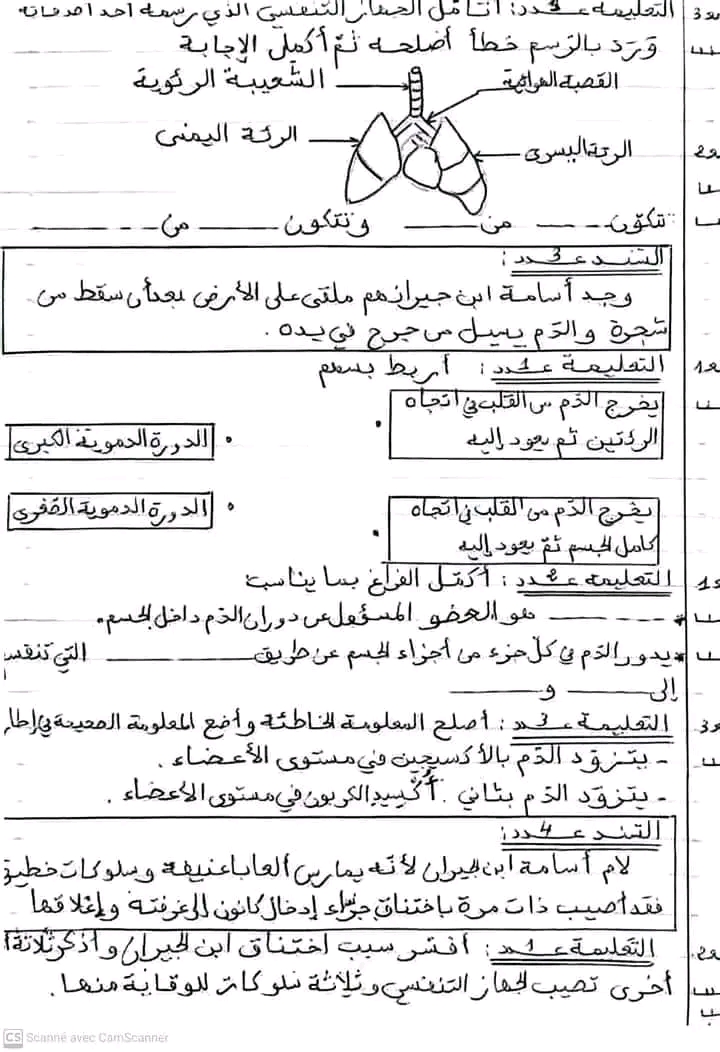 التعليمة عـ3ـدد: أتأمل الجهاز التنفسي الذي رسمه أحد أصدقائه
وَرَدَ بالرّسم خطأ أصلحه ثمّ أكمل الإجابة
القصبة الهوائية
الشّعيبة الرئوية
الرئة اليمنى
الرئة اليسرى
تتكوّن ---- من ---- و تتكون ---- من ----
السّند عـ3ـدد:
وجد أسامة ابن جيرانهم ملقى على الأرض بعد أن سقط من
شجرة و الدّم يسيل من جرح في يده .
التعليمة عـ1ـدد: أربط بسهم
يخرج الدّم من القلب في اتجاه
الرئتين ثم يعود إليه
الدورة الدموية الكبرى
يخرج الدّم من القلب في اتجاه
كامل الجسم ثمّ يعود إليه
الدورة الدموية الصغرى
التعليمة عـ2ـدد: أكمل الفراغ بما يناسب
* ---- هو العضو المسؤول عن دوران الدّم داخل الجسم.
* يدور الدّم في كلّ جزء من أجزاء الجسم عن طريق ---- التي تنقسم
إلى ---- و ----
التعليمة عـ3ـدد: أصلح المعلومة الخاطئة و أضع المعلومة الصحيحة في إطار
- يتزوّد الدّم بالأكسيجين في مستوى الأعضاء .
- يتزوّد الدّم بثاني أُكْسيدِ الكربون في مستوى الأعضاء .
السّند عـ4ـدد:
لام أسامة ابن الجيران لأنّه يمارس ألعابا عنيفة و سلوكات خطيرة
فقد أصيب ذات مرة باختناق جرّاء إدخال كانون إلى غرفته و إغلاقها
التعليمة عـ1ـدد: أفسّر سبب اختناق ابن الجيران و أذكر ثلاثة
أخرى تصيب الجهاز التنفسي و ثلاثة سلوكات للوقاية منها.
CS Scanné avec CamScanner